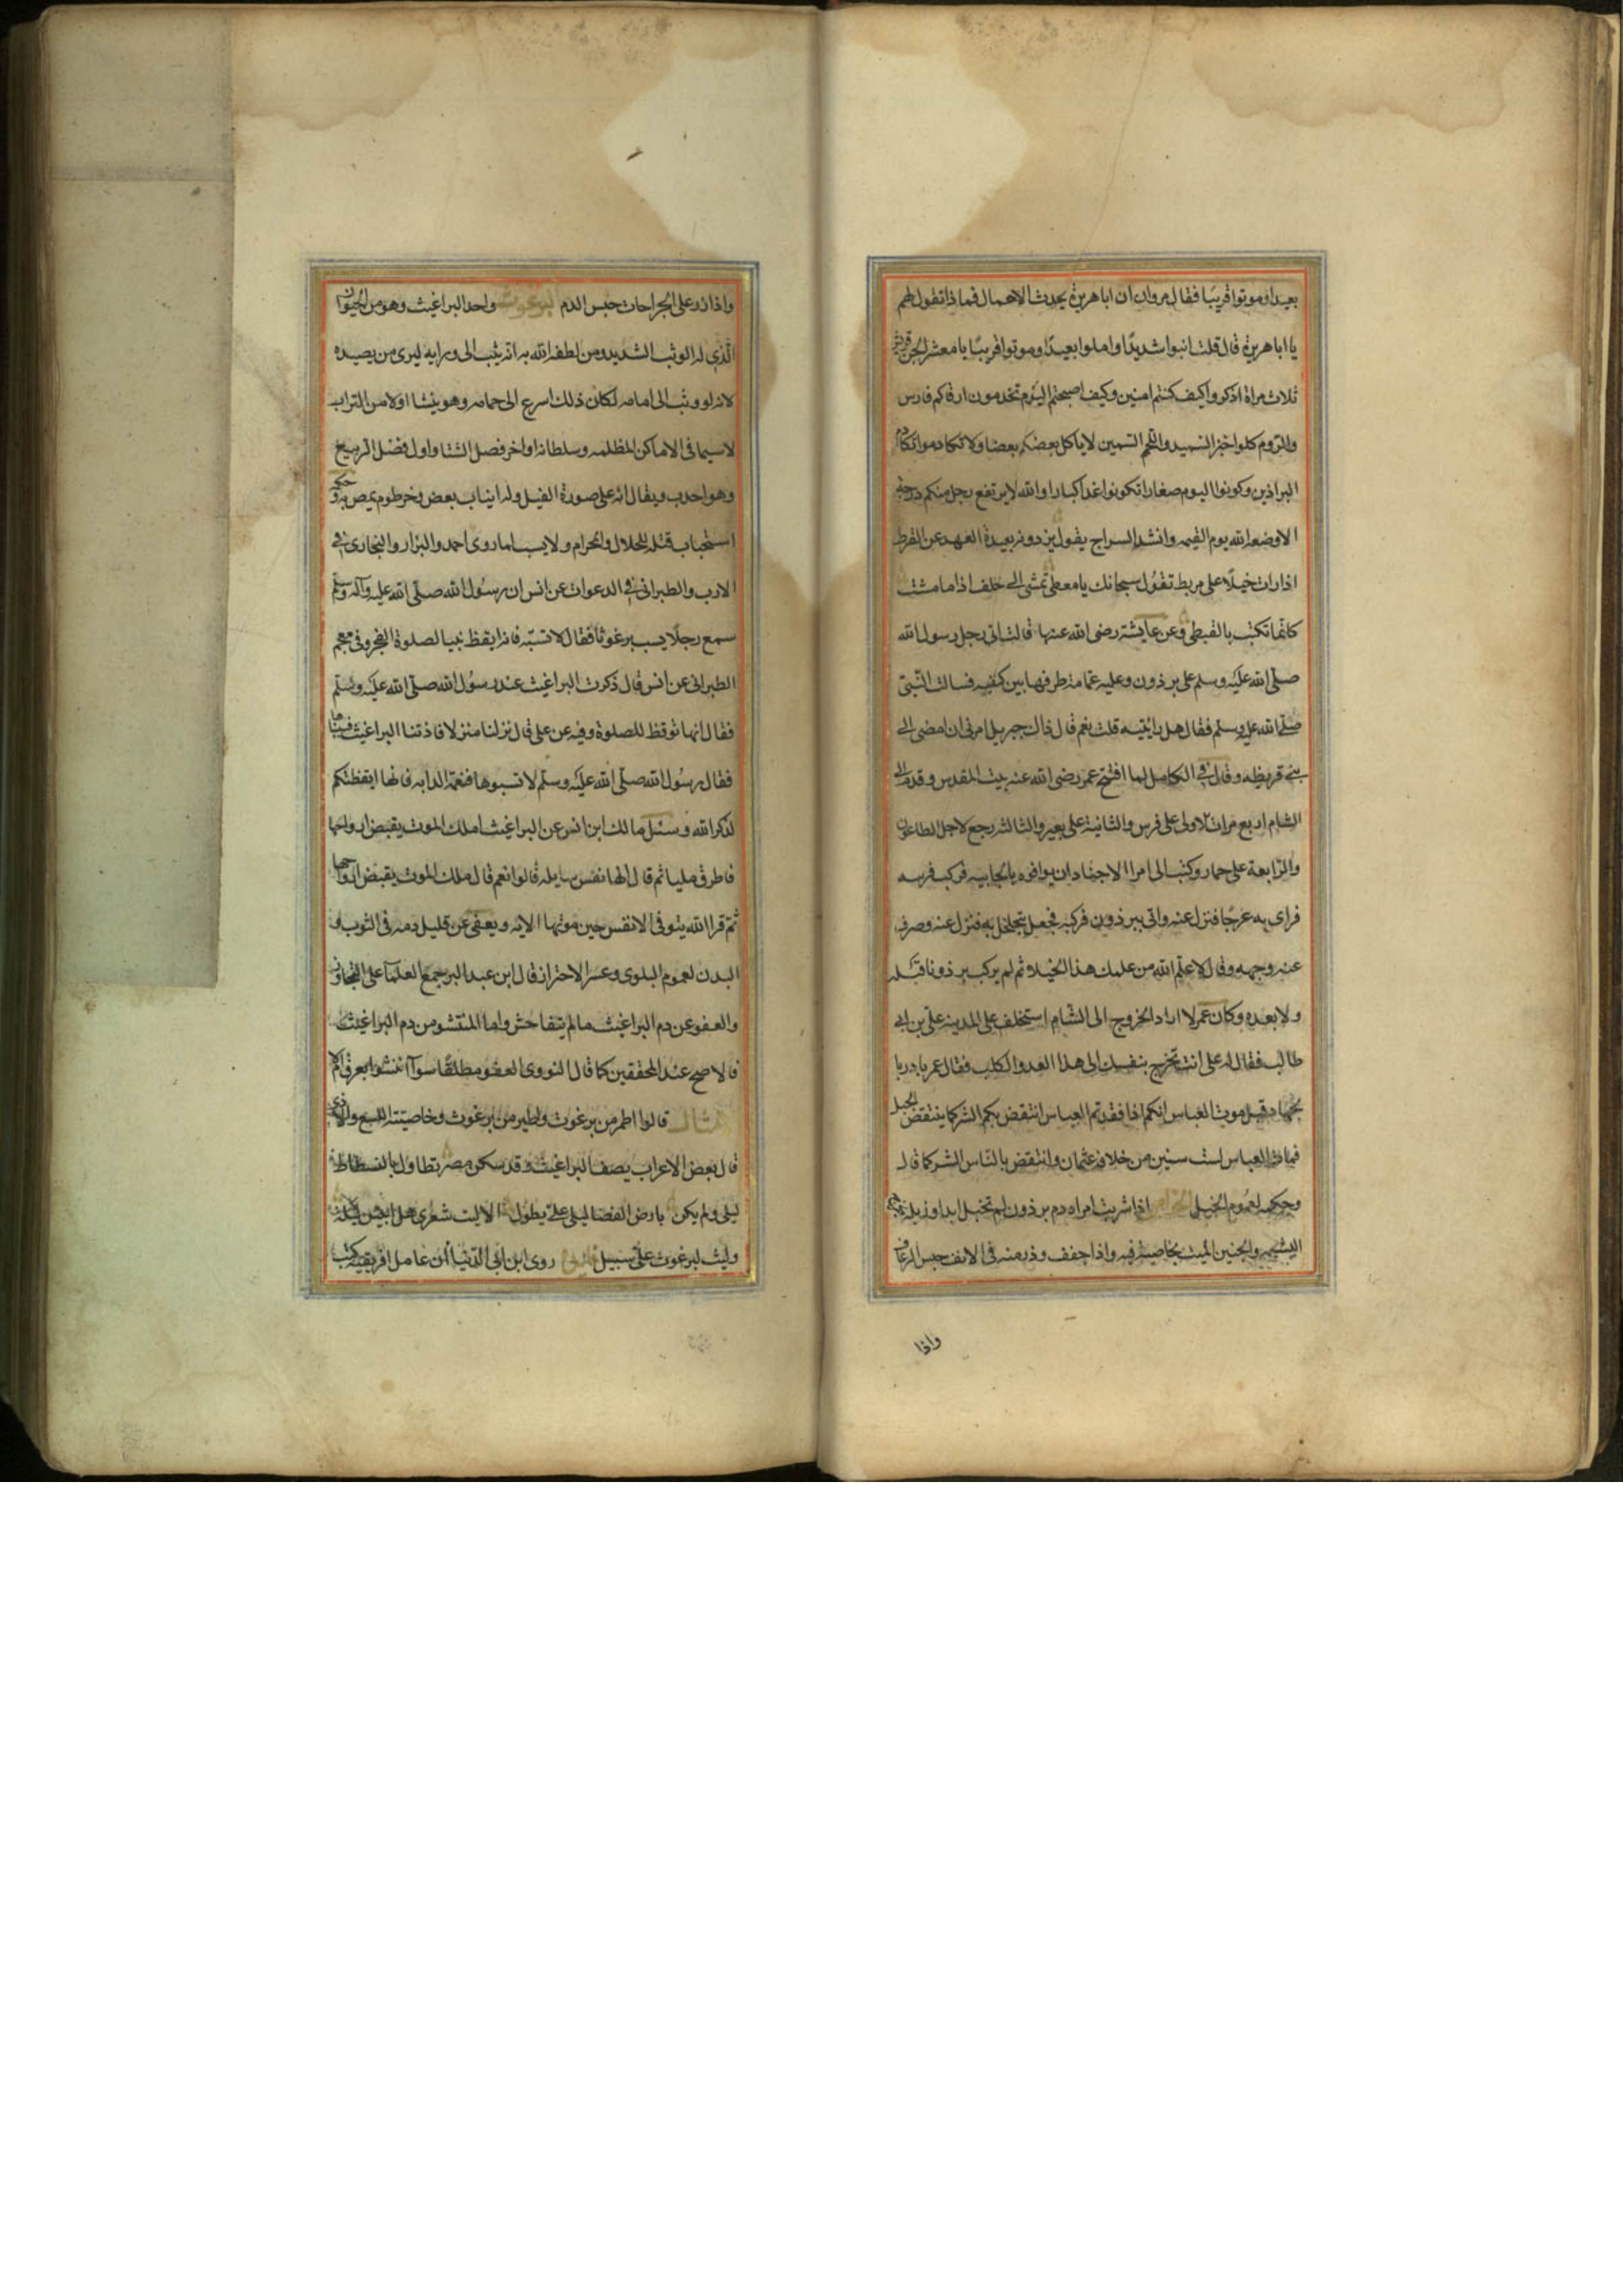 بعيدا وموتوا قريبا فقال مروان ان ابا هريرة يحدث الاعمال فماذا تقول لهم
يا ابا هريرة قال قلت ابنوا شديدا واملوا بعيدا وموتوا قريبا يا معشر
ثلاث مراة اذكروا كيف كنتم امنين وكيف اصبحتم اليوم تخدمون ارقاكم فارس
والروم كلوا خبز السميد واللحم السمين لا ياكل بعضكم بعضا ولا تكادموا تكادم
البراذين وكونوا اليوم صغارا تكونوا غدا كبارا والله لا يرتفع رجل منكم درجة
الا وضعه الله يوم القيمه وانشد السراج يقول بعيدة العهد عن القرط
اذا رات خيلا على مربط تقول سبحانك يا معطى تمشى الى خلف اذا ما مشت
كانما تكتب بالقبطى وعن عايشة رضى الله عنها قالت اتى رجل رسول الله
صلى الله عليه وسلم على برذون وعليه عمامة طرفها بين كتفيه فسالت النبى
صلى الله عليه وسلم فقال هل رايتيه قلت نعم قال ذاك جبريل امرنى ان امضى الى
بنى قريظه وقال فى الكامل لما افتتح عمر رضى الله عنه بيت المقدس وقدم الى
الشام اربع مرات الاولى على فرس والثانية على بعير والثالثه رجع لاجل الطاعون
والرابعة على حمار وكتب الى امرا الاجناد ان يوافوه بالجابيه فركب فرسه
فراى به عرجا فنزل عنه واتى ببرذون فركبه فجعل يتجلجل به فنزل عنه وصرف
عنه وجهه وقال لا علم الله من علمك هذا الخيلا ثم لم يركب برذونا قبله
ولا بعده وكان عمر لما اراد الخروج الى الشام استخلف على المدينه على بن ابى
طالب فقال له على انت تخرج بنفسك الى هذا العدو الكلب فقال عمر بادر با
لجهاد قبل موت العباس انكم اذا فقدتم العباس انتقض بكم الشر كما ينتقض الحبل
فمات العباس لست سنين من خلافة عثمان وانتقض بالناس الشر كما قال
وحكمه لعموم الخيل الخواص اذا شربت امراه دم برذون لم تحبل ابدا وزبله
المشيمه والجنين الميت بخاصية فيه واذا جفف وذر منه فى الانف حبس الرعاف
واذا
واذا ذر على الجراحات حبس الدم البرغوث واحد البراغيث وهو من الحيوان
الذى له الوثب الشديد ومن لطف الله به انه يثب الى ورايه ليرى من يصيده
لانه لو وثب الى امامه لكان ذلك اسرع الى حمامه وهو ينشا اولا من التراب
لا سيما فى الاماكن المظلمه وسلطانه اواخر فصل الشتا واول فصل الربيع
وهو احدب ويقال انه على صورة الفيل وله انياب يعض وخرطوم يمص به وحكمه
استحباب قتله للحلال والحرام ولا يسب لما روى احمد والبزار والبخارى فى
الادب والطبرانى فى الدعوات عن انس ان رسول الله صلى الله عليه وآله وسلم
سمع رجلا يسب برغوثا فقال لا تسبه فانه ايقظ نبيا لصلوة الفجر وفى معجم
الطبرانى عن انس قال ذكرت البراغيث عند رسول الله صلى الله عليه وسلم
فقال انها توقظ للصلوة وفيه عن على قال نزلنا منزلا فاذتنا البراغيث فسببناها
فقال رسول الله صلى الله عليه وسلم لا تسبوها فنعمة الدابه فانها ايقظتكم
لذكر الله وسئل مالك ابن انس عن البراغيث املك الموت يقبض ارواحها
فاطرق مليا ثم قال الها نفس سايله قالوا نعم قال ملك الموت يقبض ارواحها
ثم قرا الله يتوفى الانفس حين موتها الايه ويعفى عن قليل دمه فى الثوب و
البدن لعموم البلوى وعسر الاحتراز قال ابن عبد البر جمع العلما على التجاوز
والعفو عن دم البراغيث ما لم يتفاحش واما المنتشر من دم البراغيث
فالاصح عند المحققين كما قال النووى العفو مطلقا سوآ انتشر بعرق ام لا
الامثال قالوا اطمر من برغوث واطير من برغوث وخاصيته اللسع والاذى
قال بعض الاعراب يصف البراغيث وقد سكن مصر تطاول بالفسطاط
ليلى ولم يكن بارض الفضا ليلى على يطول الا ليت شعرى هل ابيتن ليلة
وليث لبرغوث على سبيل روى ابن ابى الدنيا ان عامل افريقيه كتب